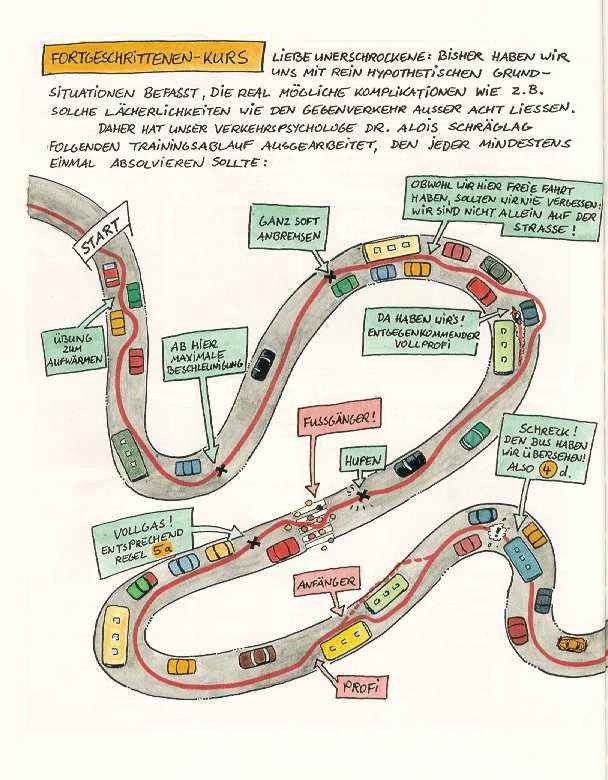 FORTGESCHRITTENEN-KURS
LIEBE UNERSCHROCKENE: BISHER HABEN WIR
UNS MIT REIN HYPOTHETISCHEN GRUND-
SITUATIONEN BEFASST, DIE REAL MÖGLICHE KOMPLIKATIONEN WIE Z.B.
SOLCHE LÄCHERLICHKEITEN WIE DEN GEGENVERKEHR AUSSER ACHT LIESSEN.
DAHER HAT UNSER VERKEHRSPSYCHOLOGE DR. ALOIS SCHRÄGLAG
FOLGENDEN TRAININGSABLAUF AUSGEARBEITET, DEN JEDER MINDESTENS
EINMAL ABSOLVIEREN SOLLTE:
START
GANZ SOFT
ANBREMSEN
OBWOHL WIR HIER FREIE FAHRT
HABEN, SOLLTEN WIR NIE VERGESSEN:
WIR SIND NICHT ALLEIN AUF DER
STRASSE!
ÜBUNG
ZUM
AUFWÄRMEN
AB HIER
MAXIMALE
BESCHLEUNIGUNG
DA HABEN WIR'S!
ENTGEGENKOMMENDER
VOLLPROFI
FUSSGÄNGER!
HUPEN
SCHRECK!
DEN BUS HABEN
WIR ÜBERSEHEN!
ALSO 4 d.
VOLLGAS!
ENTSPRECHEND
REGEL 5a
ANFÄNGER
PROFI